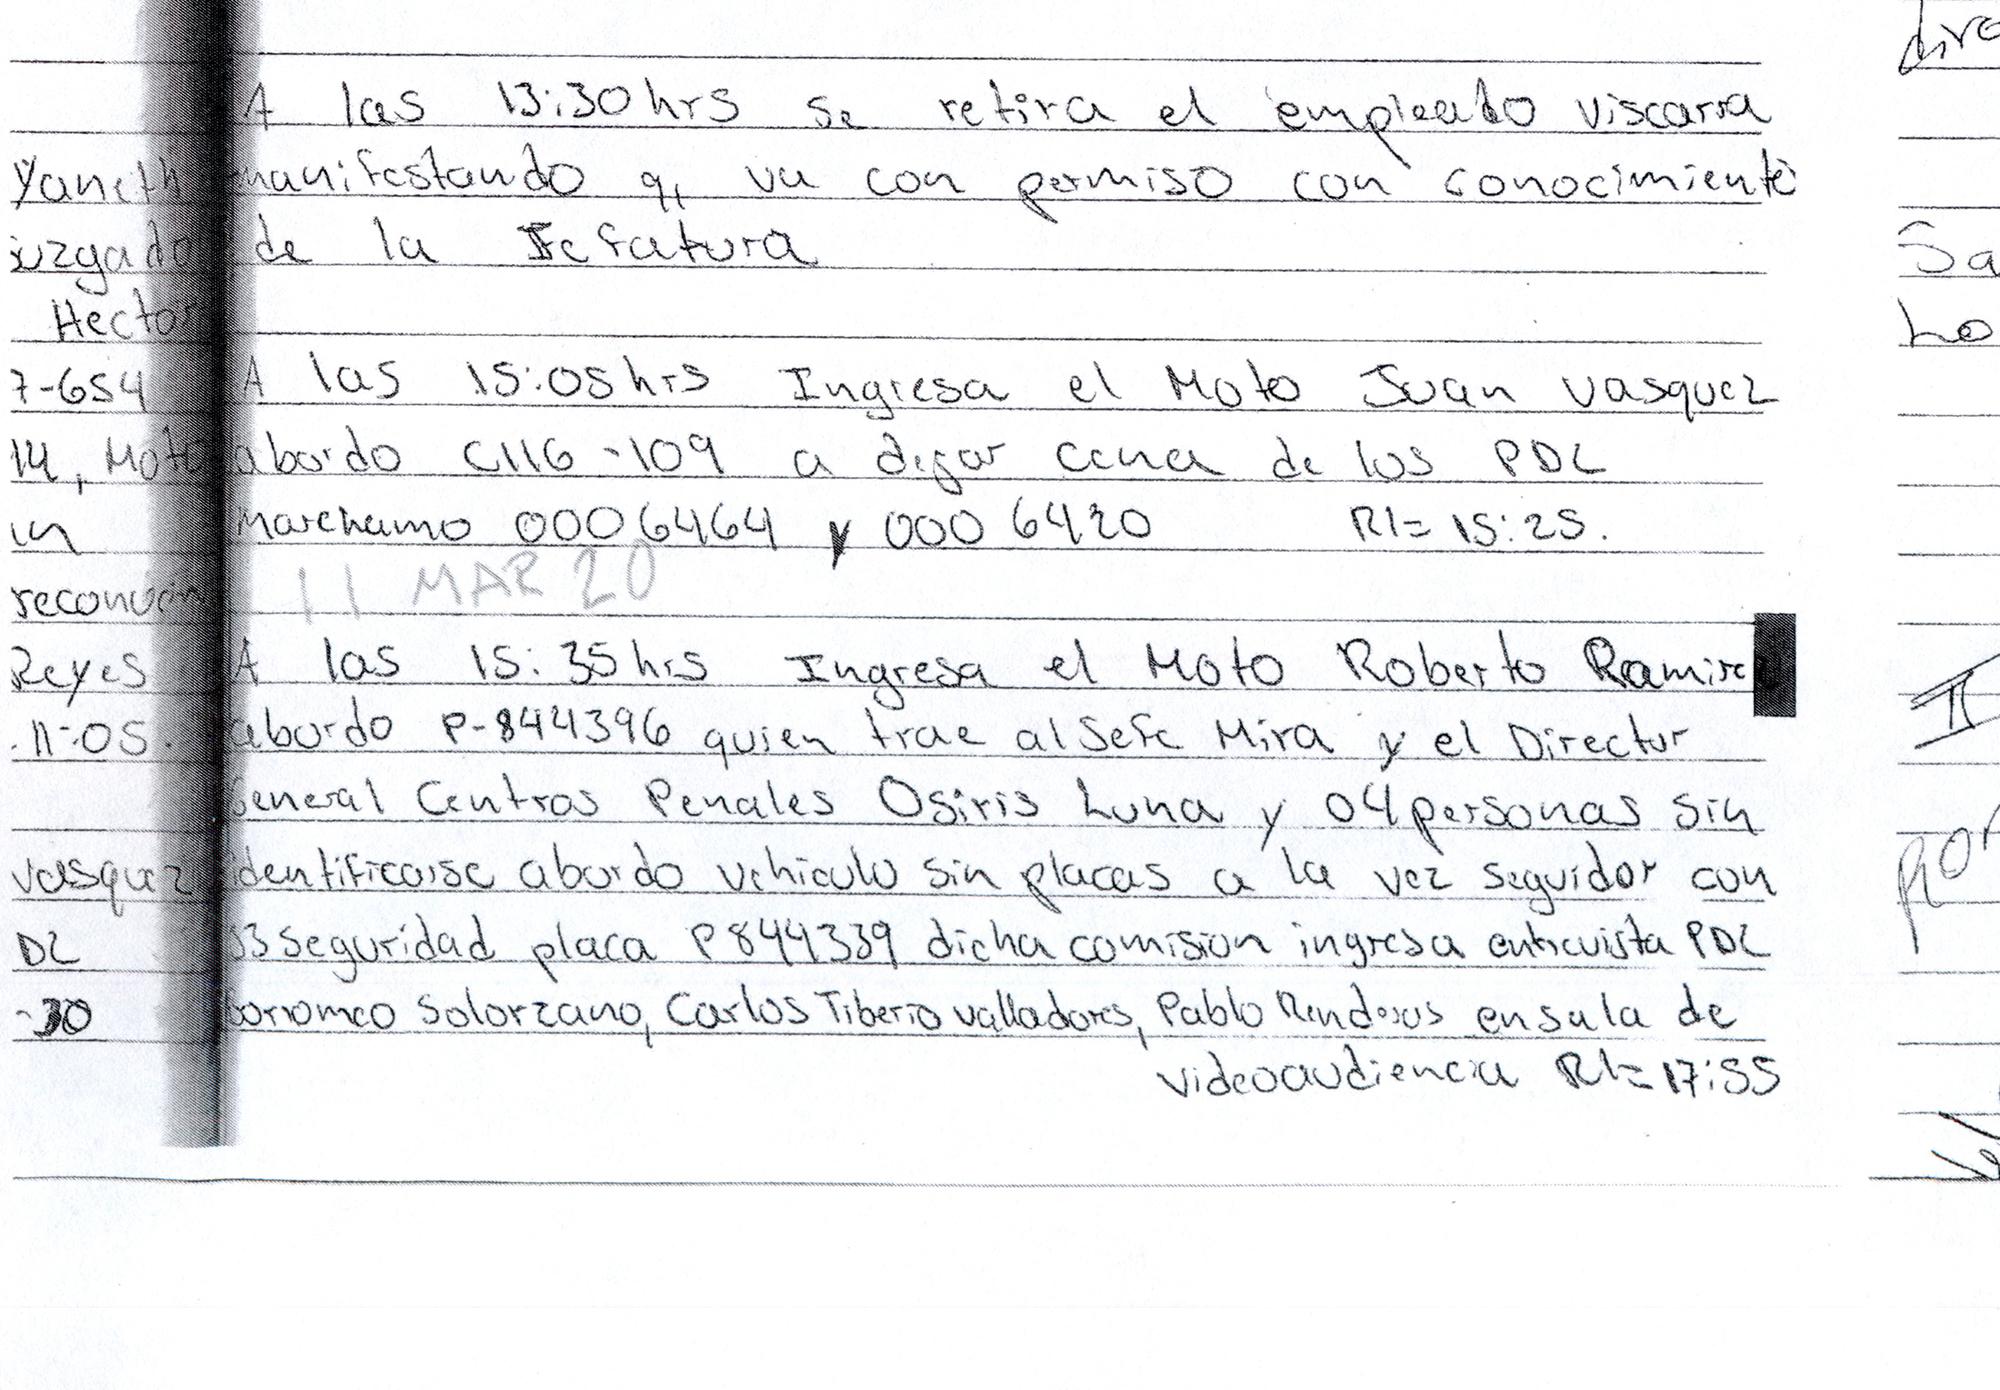 A las 13:30 hrs se retira el empleado viscarra
manifestando q, va con permiso con conocimiento
de la Jefatura
A las 15:05 hrs Ingresa el Moto Juan Vasquez
abordo C116-109 a dejar cena de los PDL
Marchamo 0006464 y 000 6420 R1= 15:25.
11 MAR 20
A las 15:35 hrs Ingresa el Moto Roberto Ramire
abordo P-844396 quien trae al Jefe Mira y el Director
General Centros Penales Osiris Luna y 04 personas sin
identificarse abordo vehiculo sin placas a la vez seguidor con
03 seguridad placa P844339 dicha comision ingresa entrevista PDL
borromeo Solorzano, Carlos Tiberio valladares, Pablo en sala de
videoaudiencia R1= 17:55
Yaneth
juzgado
Hector
7-654
14, Moto
un
Reyes
11-05.
vasquez
DL
-30
Sa
Lo
II
por